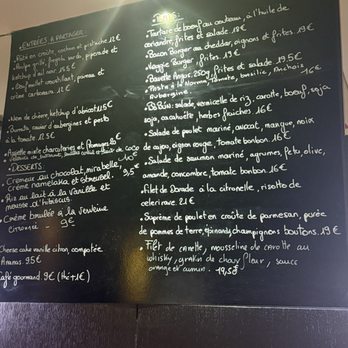 - ENTRÉES À PARTAGER:
- Pâté en croûte, cochon et pistache 12€
- Poulpe grillé, fregola sarda, piperade et
ketchup d'ail noir 16€
- Oeuf parfait croustillant, panais et
crème carbonara 12€
ketchup d'abricot 15€
- Burrata, caviar d'aubergines et pesto
à la tomate 13€
- Assiette mixte charcuteries et fromages
- DESSERTS:
- Crémeux au chocolat, mirabelle
crème namelaka et streusel. 9,5€
- Riz au lait à la vanille et
mousse d'hibiscus
- Crème brûlée à la verveine
citronnée - 9€
Cheese cake vanille citron compotée
Ananas. 9.5€
Café gourmand. 9€ (thé +1€)
- PLATS:
- Tartare de boeuf au couteau, à l'huile de
coriandre, frites et salade 19€
- Bacon Burger au cheddar, oignons et frites 19€
- Veggie Burger, frites. 19€
- Bavette Angus. 250g, frites et salade. 19.5€
- Pasta à la Norma, Tomate, basilic, Anchois
Aubergine 16€
- Bò Bún: salade, vermicelle de riz, carotte, boeuf, soja
soja, cacahuète, herbes fraîches 16€
- Salade de poulet mariné, avocat, mangue, noix
de cajou, oignon rouge, tomate, bonbon. 16€
- Salade de saumon mariné, agrumes, feta, olive,
amande, concombre, tomate bonbon. 16€
- Filet de Dorade à la citronnelle, risotto de
céleri rave. 21€
- Suprême de poulet en croûte de parmesan, purée
de pommes de terre, épinards, champignons boutons. 19€
- Filet de canette, mousseline de carotte au
whisky, gratin de chou fleur, sauce
orange et cumin. 19,5€